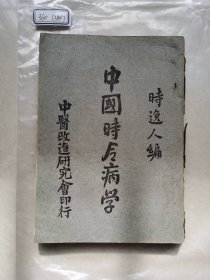 時逸人編
中國時令病学
中醫改進研究會印行